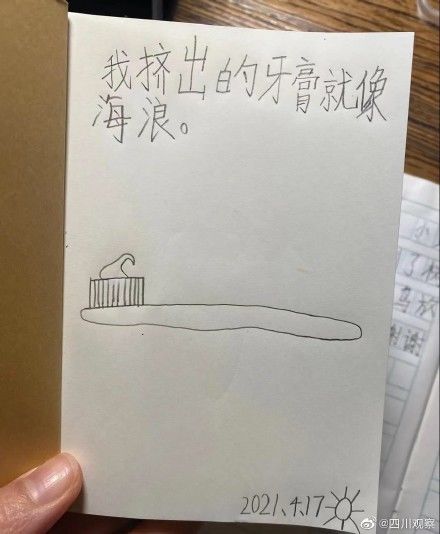 我挤出的牙膏就像
海浪。
小
了
鸟放
谢谢
2021.4.17
@四川观察